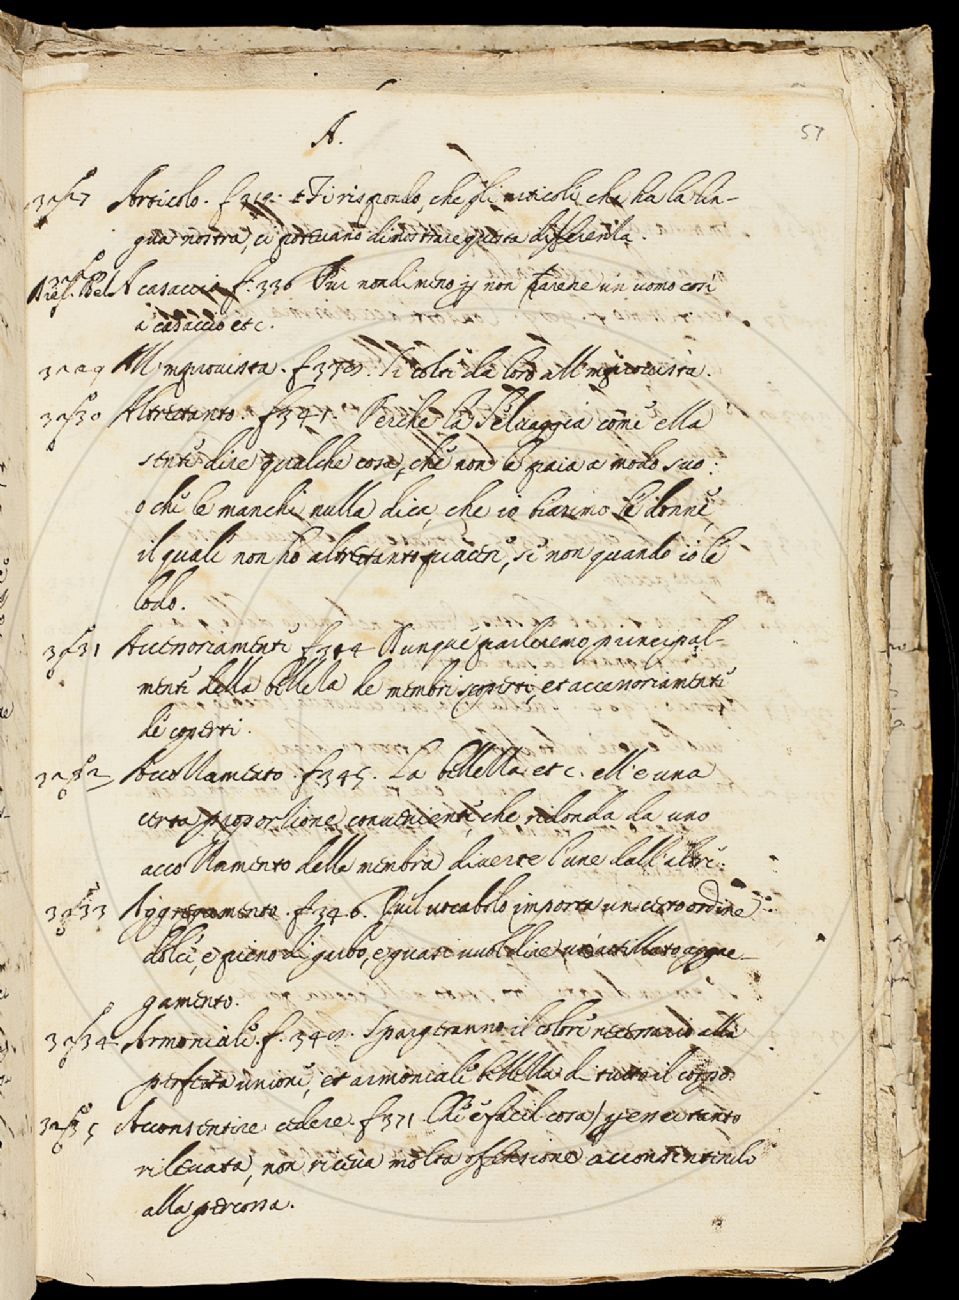 57
A.
Articolo. f 312. Ti rispondo, che gli articoli, che ha la lin-
gua nostra, ci potevano dimostrare questa differenza.
A casaccio f. 336 Pur nondimeno non parere un uomo così
a casaccio etc.
All'improvista. f 370. Ti colti da loro all'improvista.
Altretanto. f 341. Perche la Selvaggia come ella
sente dire qualche cosa, che non le paia a modo suo:
o che le manchi nulla dica, che io biasimo le donne,
il quale non ho altretanto piacere, se non quando io le
lodo.
Accessoriamente f 344 Dunque parleremo principal-
mente della bellezza de membri scoperti, et accessoriamente
de coperti.
Accozzamento. f 345. La bellezza etc. ell'è una
certa proportione conveniente, che ridonda da uno
accozzamento della membra diverse l'une dall'altre.
Aggregamento. f 346. Quel vocabolo importa un certo ordine
dolce, e pieno di garbo, e quasi vuol dire un attillato aggre-
gamento.
Armoniale. f. 340. Spargeranno il colore necessario alla
perfetta unione, et armoniale bellezza di tutto il corpo.
Acconsentire cedere. f 371 è facil cosa essere tanto
rilevata, non riceva molta offensione acconsentendo
alla percossa.